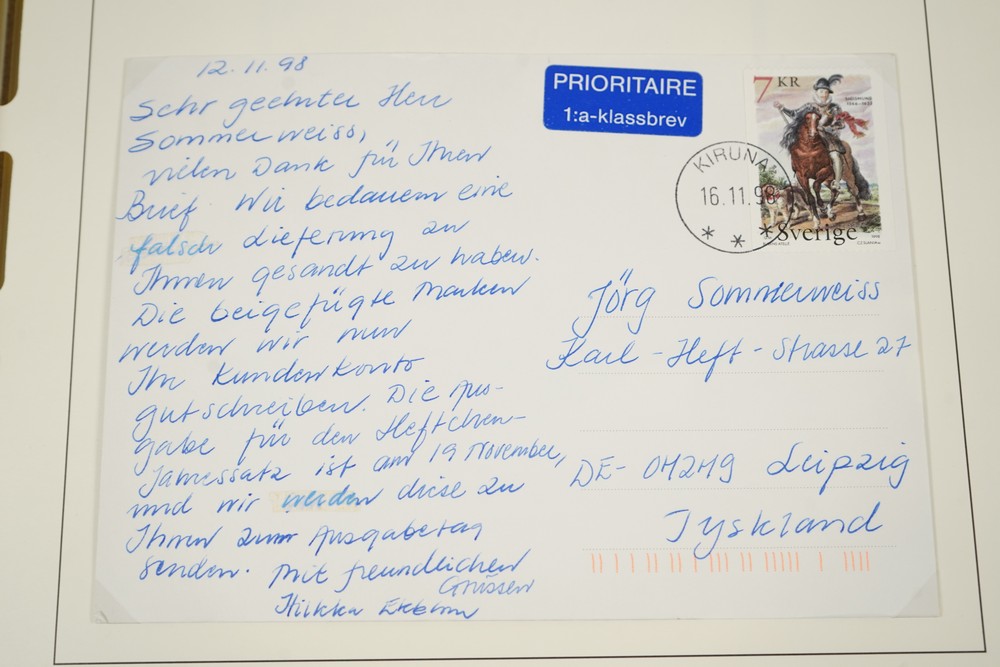 12.11.98
Sehr geehrter Herr
Sommerweiss,
vielen Dank für Ihren
Brief. Wir bedauern eine
falsch Lieferung zu
Ihnen gesandt zu haben.
Die beigefügte Marken
werden wir nun
Ihr Kundenkonto
gutschreiben. Die Aus-
gabe für den Heftchen-
Jahressatz ist am 19 November,
und wir werden diese zu
Ihnen zum Ausgabetag
senden. Mit freundlichen
Grüssen
Hilkka
PRIORITAIRE
1:a-klassbrev
7 KR
KIRUNA
16.11.98
* * *
Sverige
Jörg Sommerweiss
Karl-Heft-Strasse 27
DE-04249 Leipzig
Tyskland